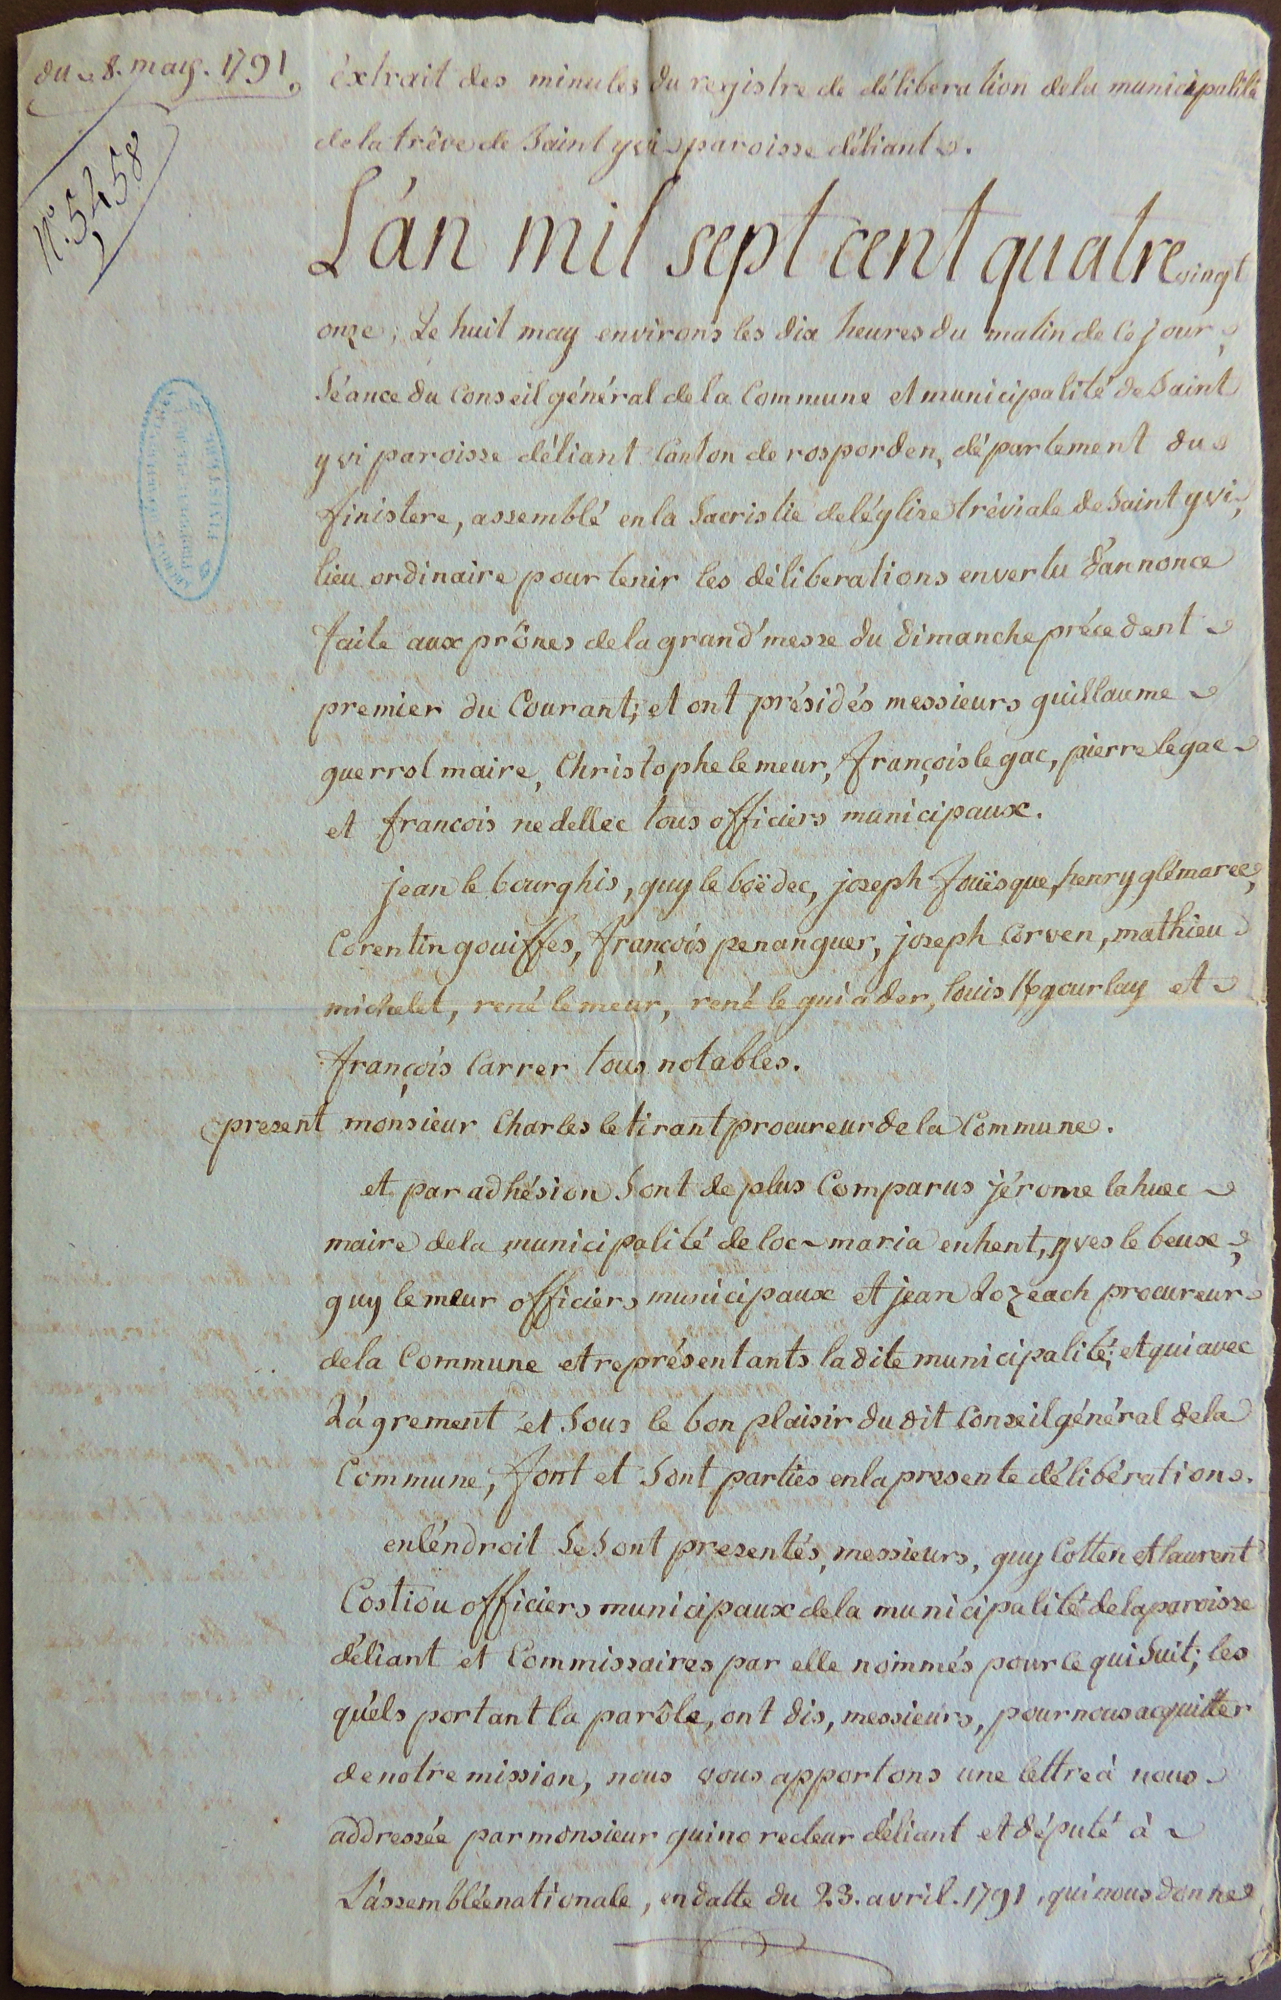 du 8. may. 1791
n.° 5458
éxtrait des minutes du registre de déliberation dela municipalité
dela trêve de Saint yvi paroisse déliant.
L'án mil sept cent quatre vingt
onze, Le huit may environs les dix heures du matin de Ce jour,
Séance du Conseil général dela Commune et municipalité de Saint
yvi paroisse déliant Canton de rosporden, département du
finistere, assemblé en la Sacristie deléglise tréviale de Saint yvi,
lieu ordinaire pour tenir les déliberations en vertu d'annonce
faite aux prônes dela grand'messe du dimanche précedent
premier du Courant; et ont présidés messieurs guillaume
guerrol maire, Christophe le meur, françois le gac, pierre le gac
et francois nedellec tous officiers municipaux.
jean le bourghis, guy le boëdec, joseph fouësque, henry glémarec,
Corentin gouiffes, françois penanguer, joseph Corven, mathieu
michelet, rené le meur, rené le guiader, louis gourlay et
françois Carrer tous notables.
present monsieur Charles le tirant procureur de la Commune.
et par adhésion Sont de plus Comparus jérome lahuec
maire dela municipalité de loc-maria enhent, yves le beux,
guy le meur officiers municipaux et jean Lozeach procureur
dela Commune et représentants la dite municipalité; et qui avec
L'ágrement et Sous le bon plaisir du dit Conseil général dela
Commune, font et Sont parties en la presente délibérations.
en léndroit Se Sont presentés, messieurs, guy Cotten et laurent
Costiou officiers municipaux dela municipalité dela paroisse
déliant et Commissaires par elle nommés pour ce qui Suit; les
quéls portant la parôle, ont dis, messieurs, pour nous acquitter
de notre mission, nous vous apportons une lettre à nous
addressée par monsieur guino recteur déliant et député à
L'ássemblée nationale, en datte du 23. avril. 1791, qui nous donne